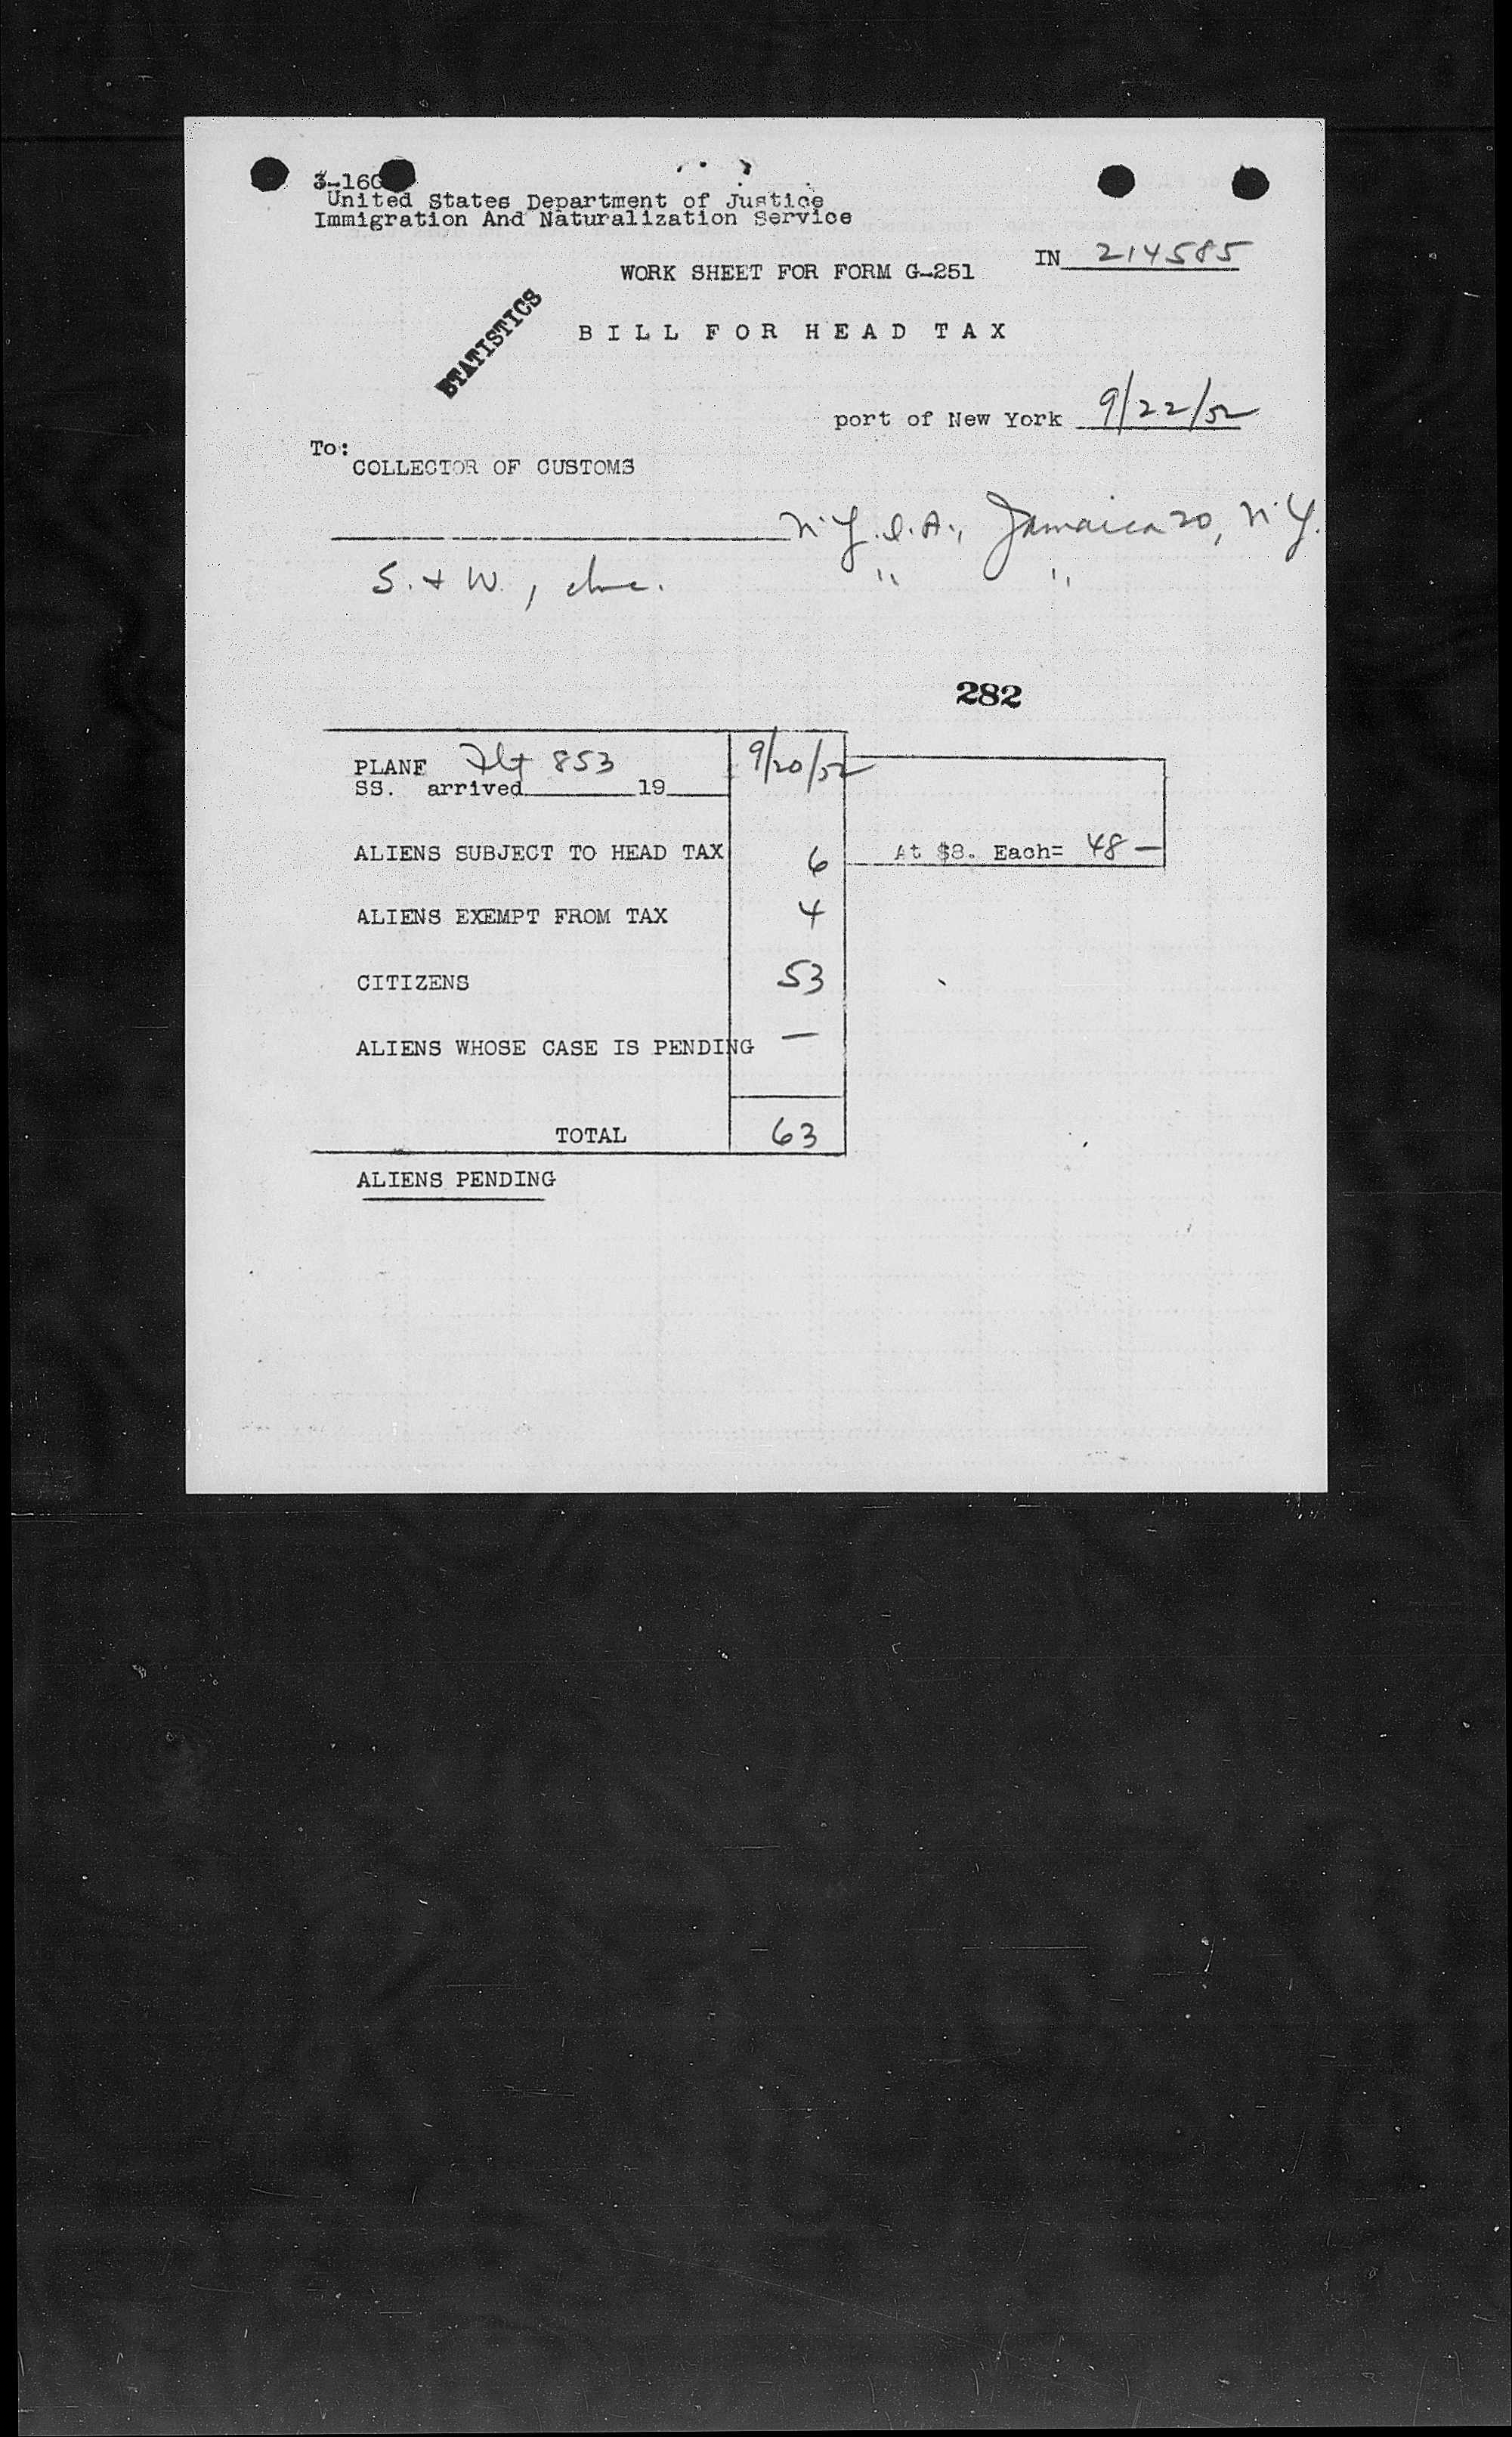 3-160
United States Department of Justice
Immigration And Naturalization Service
IN 214585
WORK SHEET FOR FORM G-251
STATISTICS
BILL FOR HEAD TAX
port of New York 9/22/52
To:
COLLECTOR OF CUSTOMS
N.Y.I.A., Jamaica 20, N.Y.
S. & W., Inc. " "
282
PLANE Flt 853 9/20/52
SS. arrived 19
ALIENS SUBJECT TO HEAD TAX 6 At $8. Each= 48 —
ALIENS EXEMPT FROM TAX 4
CITIZENS 53
ALIENS WHOSE CASE IS PENDING —
TOTAL 63
ALIENS PENDING